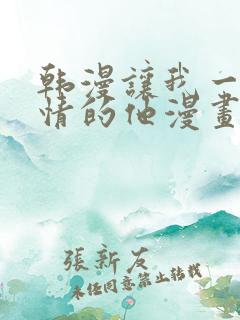 韩漫讓我一
情的他漫畫
張新友
未经同意禁止转载